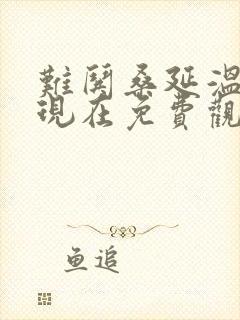 難鬨桑延溫
現在免費觀
鱼追